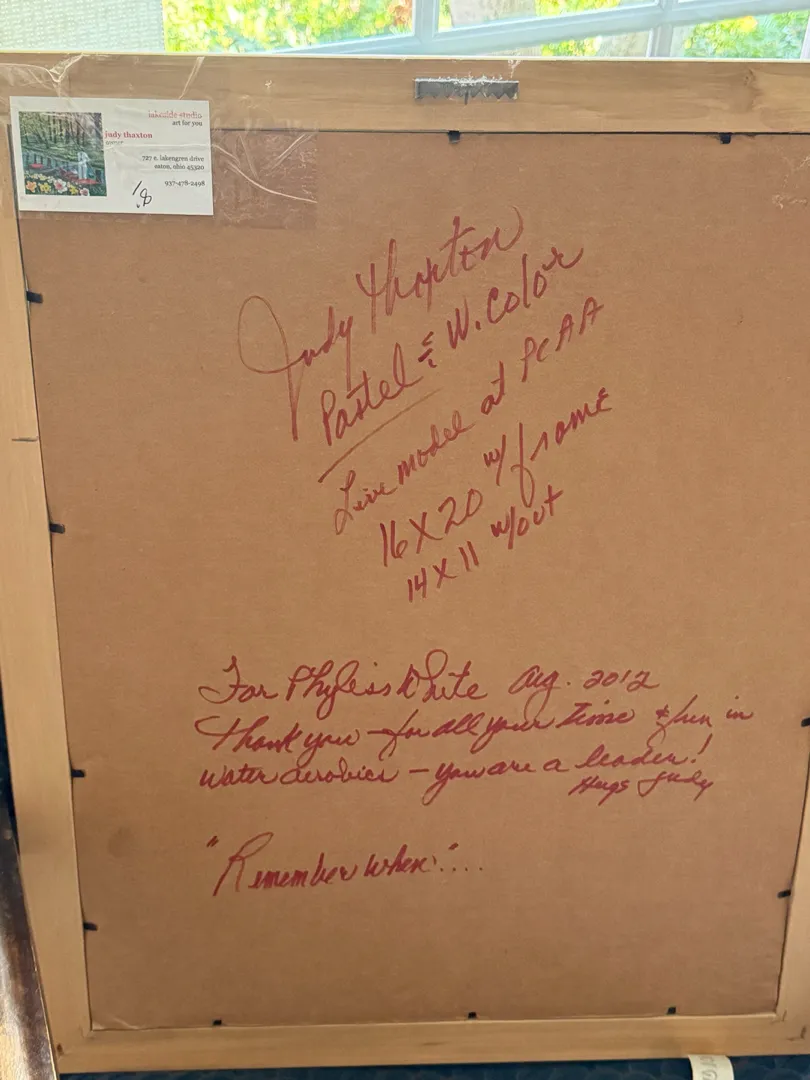 lakeside studio
art for you
judy thaxton
owner
727 e. lakengren drive
eaton, ohio 45320
937-478-2498
Judy Thaxton
Pastel & W. Color
Live model at PCAA
16 X 20 w/ frame
14 X 11 w/out
For Phyliss White Aug. 2012
Thank you - for all your time & fun in
water aerobics - you are a leader!
Hugs Judy
"Remember when"....